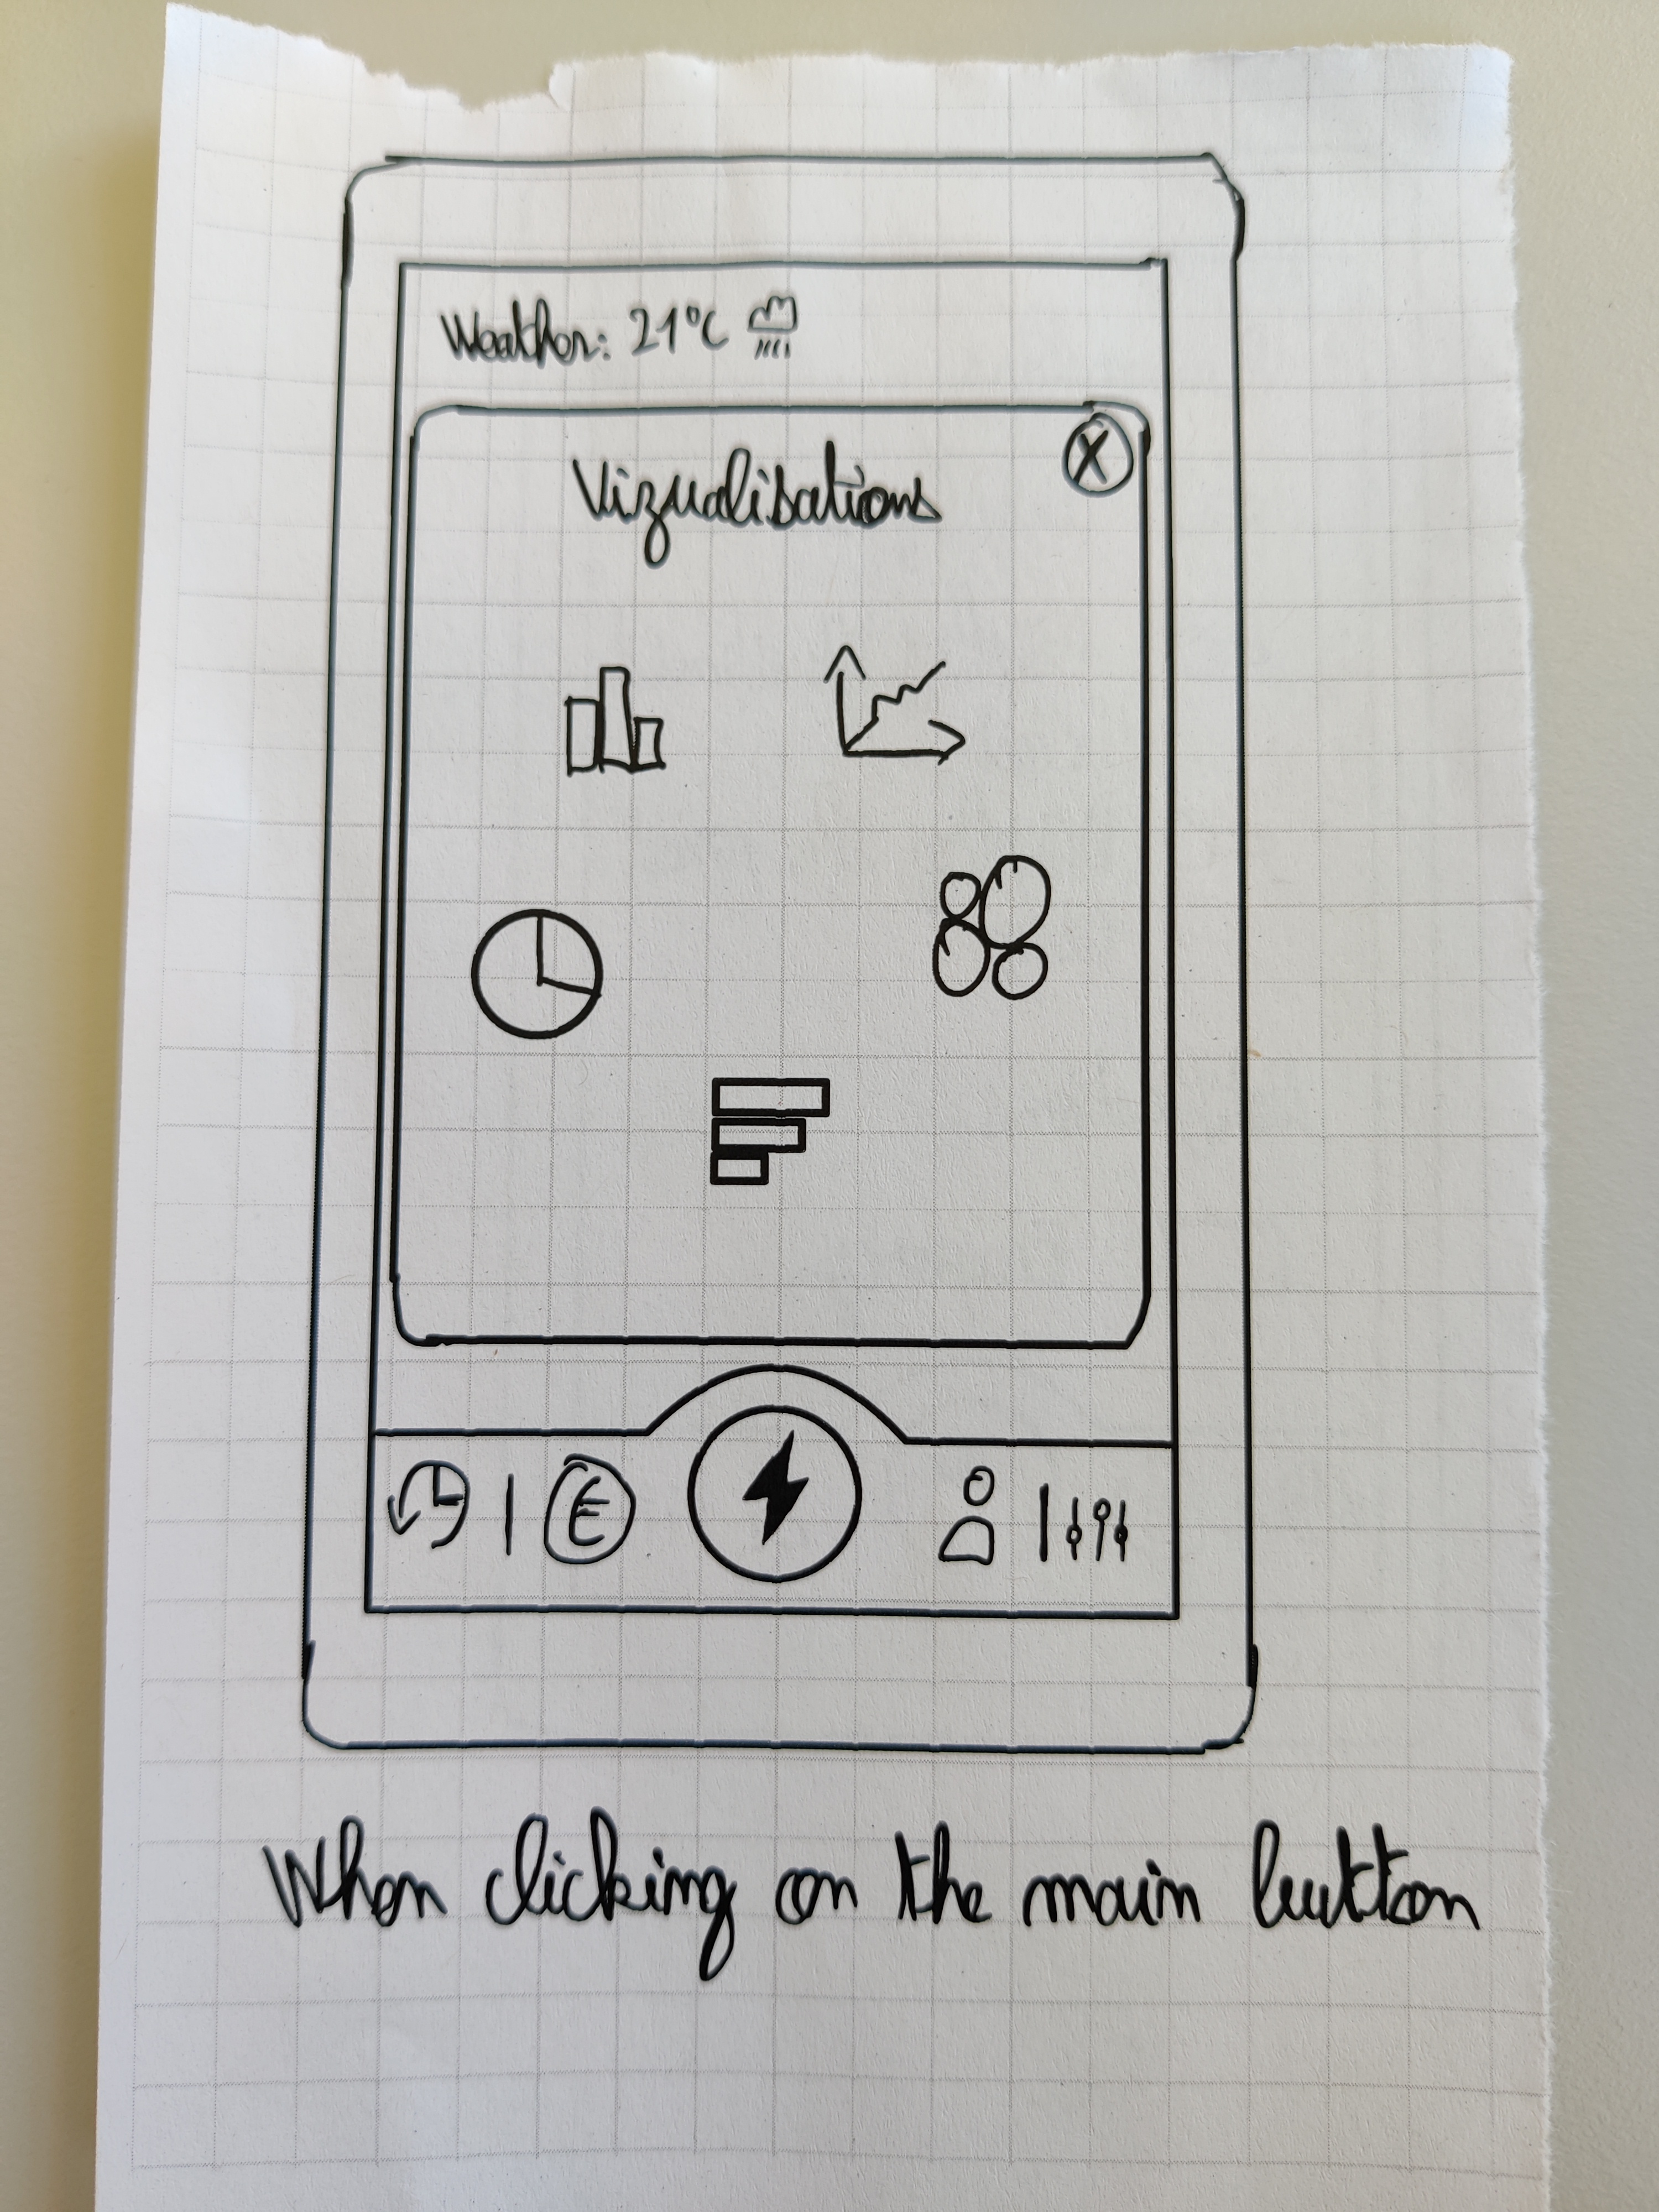 Weather: 21°C
X
Vizualisations
€
When clicking on the main button